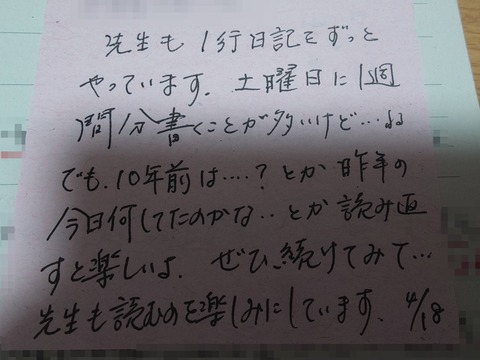 先生も1行日記をずっと
やっています。土曜日に1週
間分書くことが多いけど…
でも、10年前は….?とか昨年の
今日何してたのかな..とか読み直
すと楽しいよ。ぜひ、続けてみて…
先生も読むのを楽しみにしています。4/18